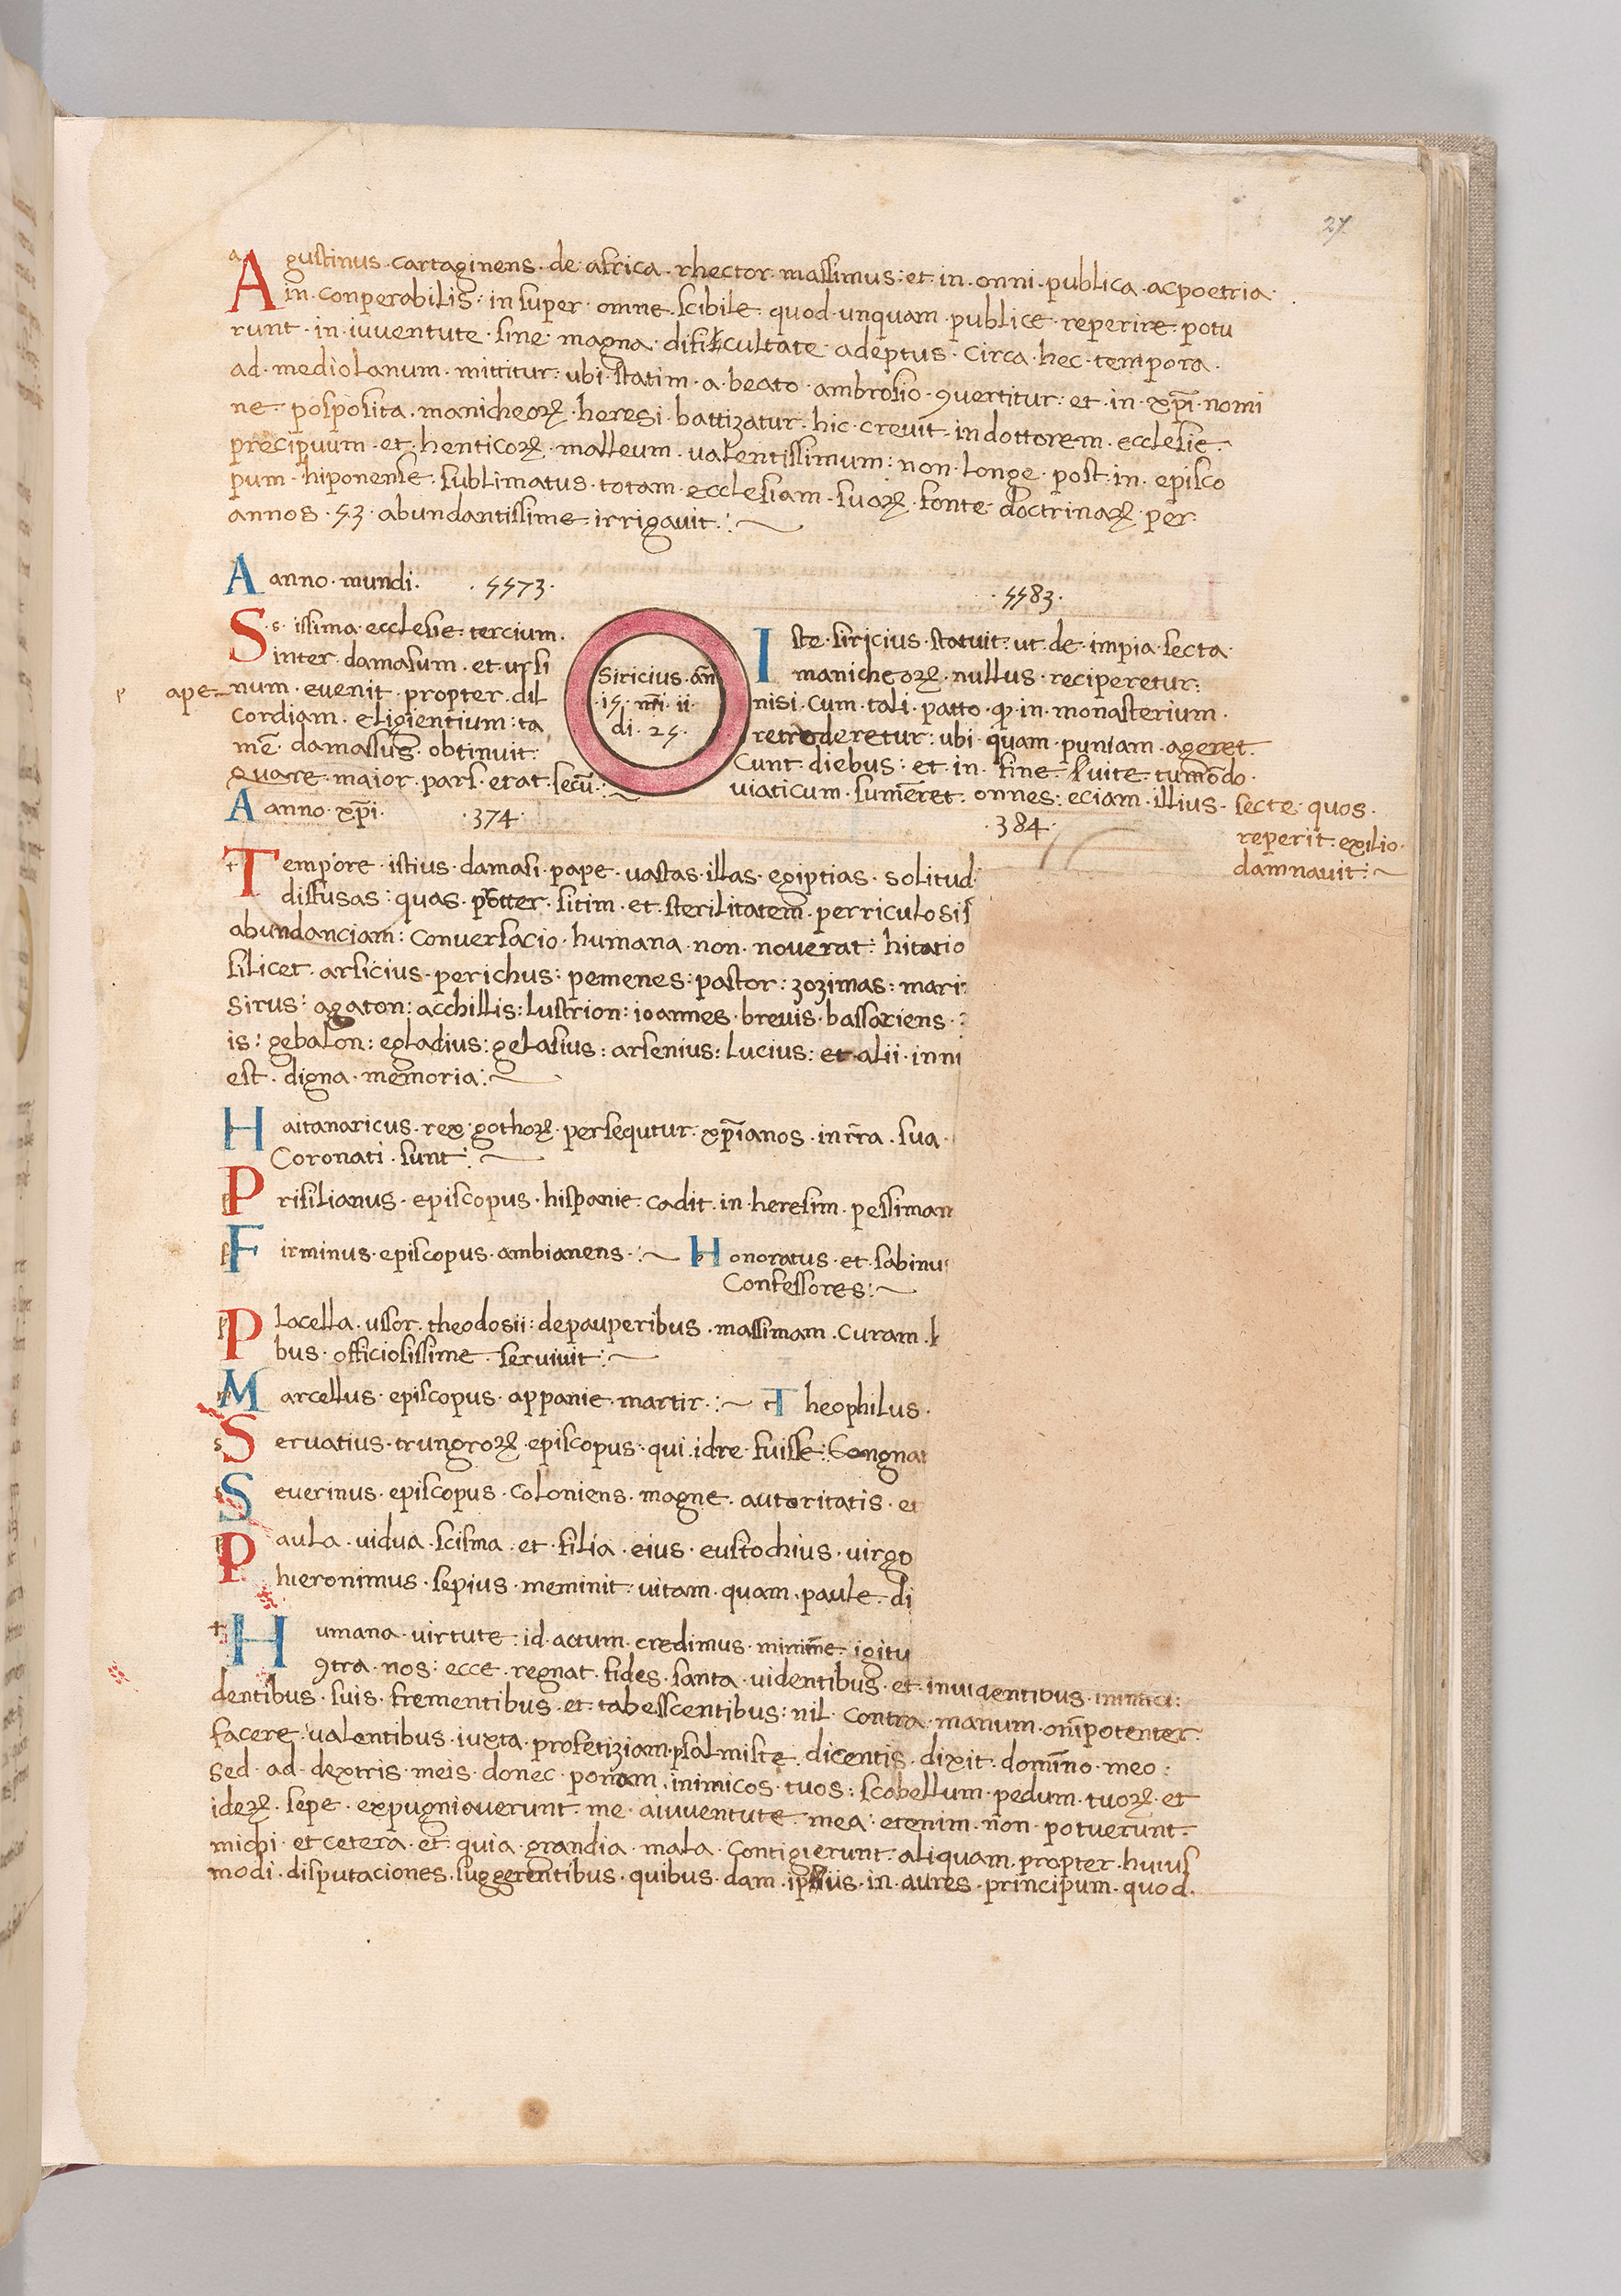 27
Agustinus · cartaginens · de · africa · rhector · massimus : et · in · onni · publica · ac poetria ·
in · conperabilis : in super · omne · scibile · quod · unquam · publice · reperire · potu
runt · in · iuventute · sine · magna · dificultate · adeptus · circa · hec · tempora ·
ad · mediolanum · mittitur : ubi · statim · a · beato · ambrosio · ꝯvertitur : et · in · xp̄i · nomi
ne · posposita · manicheoꝝ · heresi · battizatur · hic · crevit · in dottorem · ecclesie ·
precipuum · et · henticoꝝ · malleum · valentissimum : non · longe · post · in · episco
pum · hiponense · sublimatus · totam · ecclesiam · suaꝝ · fonte · doctrinaꝝ · per ·
annos · 43 · abundantissime · irrigavit :
A anno · mundi · · 5573 · · 5583 ·
S · s · issima · ecclesie · tercium ·
inter · damasum · et · ursi
ape num · evenit · propter · dis
cordiam · eligientium : ta
mē · damassus · obtinuit :
quare · maior · pars · erat · secū :
Siricius · an̄
· 15 · m̄i · ii ·
di · 25 ·
Iste · siricius · statuit : ut · de · impia · secta ·
manicheoꝝ · nullus · reciperetur :
nisi · cum · tali · patto · ꝙ · in · monasterium ·
retroderetur : ubi · quam · puniam · ageret ·
Cunt · diebus : et · in · fine · suite · tum̄odo ·
viaticum · sumeret · onnes : eciam · illius · secte · quos ·
reperit · exilio ·
damnavit :
A anno · xp̄i · · 374 · · 384 ·
Tempore · istius · damasi · pape · vastas · illas · egiptias · solitud
diffusas : quas · potter · sitim · et · sterilitatem · perriculosis
abundanciam : conversacio · humana · non · noverat : hitatio
silicet · arsicius · perichus : pemenes : pastor : zozimas : mari
sirus : agaton : acchillis : lustrion : ioannes · brevis · bassariens ·
is : gebalon : egladius : gelasius : arsenius : lucius : et · alii · inni
est · digna · memoria :
Haitanaricus · rex · gothoꝝ · persequtur · xp̄ianos · in tr̄a · sua ·
Coronati · sunt :
Prisilianus · episcopus · hispanie · cadit · in · heresim · pessiman
Firminus · episcopus · ambianens : Honoratus · et · sabinu
Confessores :
Placella · ussor · theodosii : depauperibus · massimam · curam ·
bus · officiosissime · servivit :
Marcellus · episcopus · appanie · martir : Theophilus ·
Servatius · trungroꝝ · episcopus · qui · idre · fuisse : Congna
Severinus · episcopus · coloniens · magne · autoritatis · et
Paula · vidua · scisma · et · filia · eius · eustochius · virgo
hieronimus · sepius · meminit : vitam · quam · paule · di
Humana · virtute : id · actum · credimus · minime · igitu
ꝯtra · nos : ecce · regnat · fides · santa · videntibus · et · invidentibus · inimici :
dentibus · suis · frementibus · et · tabesscentibus : nil · contra · manum · om̄ipotenter ·
facere · valentibus · iuxta · profetiziam · psalmiste · dicentis · dixit · domīno · meo :
sed · ad · dextris · meis · donec · ponam · inimicos · tuos : scabellum · pedum · tuoꝝ · et
ideꝝ · sepe · expugniaverunt · me · aiuventute · mea : etenim · non · potuerunt ·
michi · et cetera · et · quia · grandia · mala · contigierunt · aliquam · propter · huius
modi · disputaciones · suggerentibus · quibus · dam · ipsius · in · aures · principum · quod ·